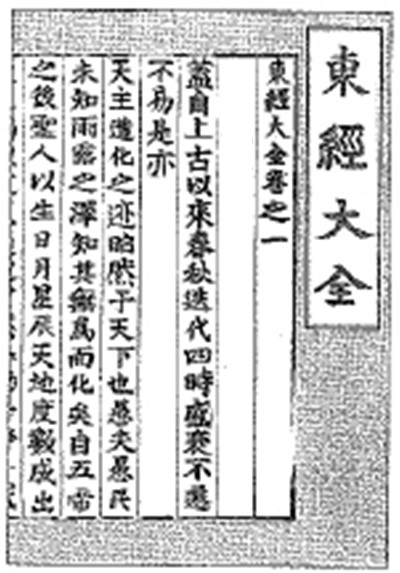 東經大全
東經大全卷之一
盖自上古以來春秋迭代四時盛衰不遷
不易是亦
天主造化之迹昭然于天下也愚夫愚民
未知雨露之澤知其無爲而化矣自五帝
之後聖人以生日月星辰天地度數成出